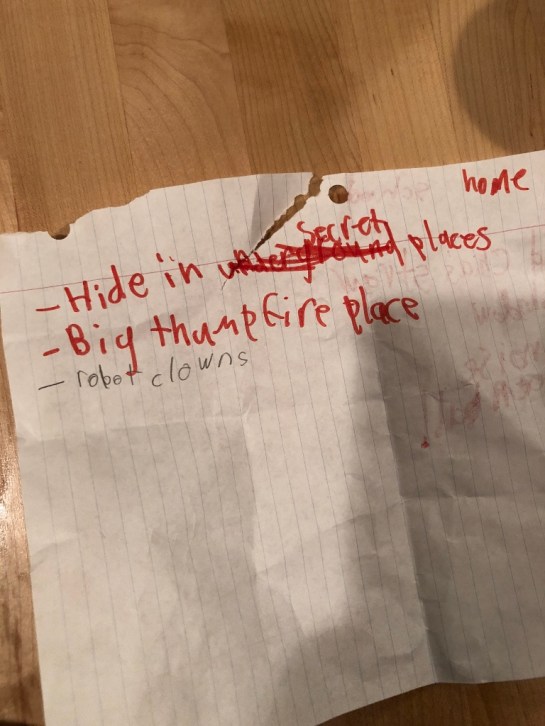 home
- Hide in secret places
- Big thump fire place
- robot clowns